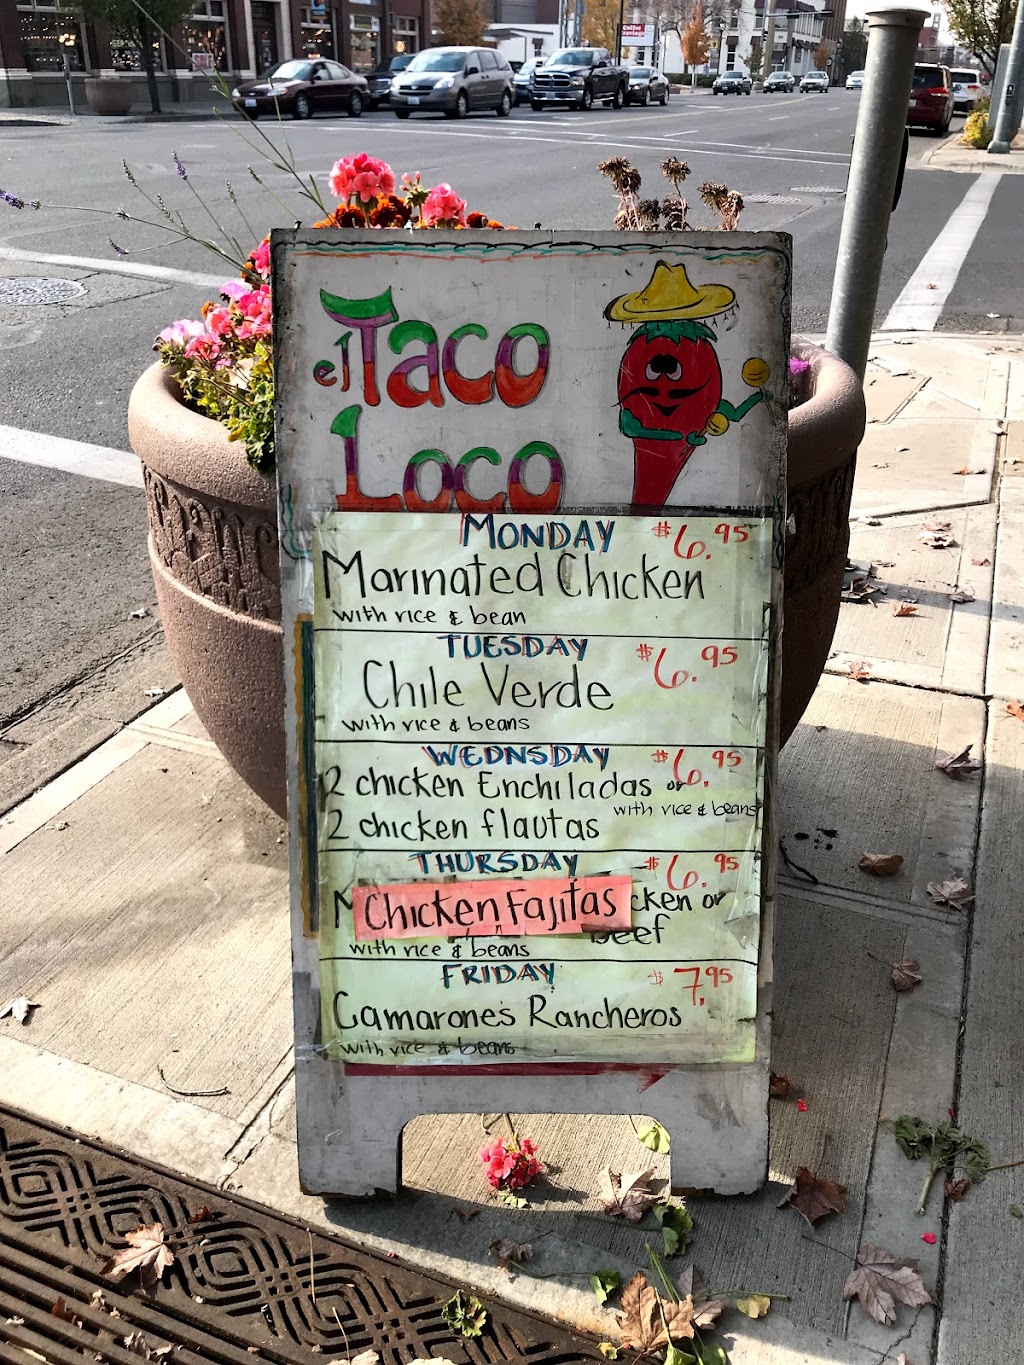 el Taco
Loco
MONDAY $6.95
Marinated Chicken
with rice & bean
TUESDAY $6.95
Chile Verde
with rice & beans
WEDNSDAY $6.95
2 chicken Enchiladas or
with rice & beans
2 chicken flautas
THURSDAY $6.95
Chicken Fajitas cken or
beef
with rice & beans
FRIDAY $7.95
Camarones Rancheros
with rice & beans